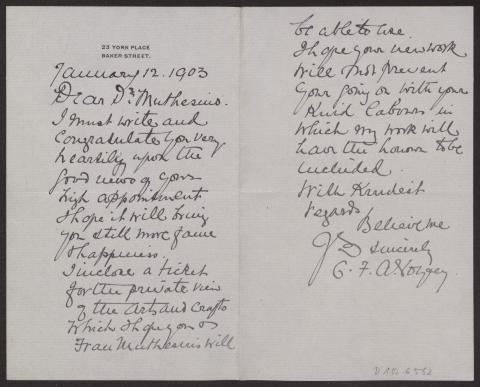 23 YORK PLACE
BAKER STREET.
January 12. 1903
Dear Dr. Muthesius.
I must write and
Congratulate you very
heartily upon the
good news of your
high appointment
I hope it will bring
you still more fame
& happiness.
I inclose a ticket
for the private view
of the Arts and Crafts
which I hope you or
Frau Muthesius will
be able to use.
I hope your new work
will not prevent
your going on with your
Kind labours in
which my work will
have the honour to be
included.
With Kindest
regards
Believe me
Yrs sincerely
C. F. A. Voysey.